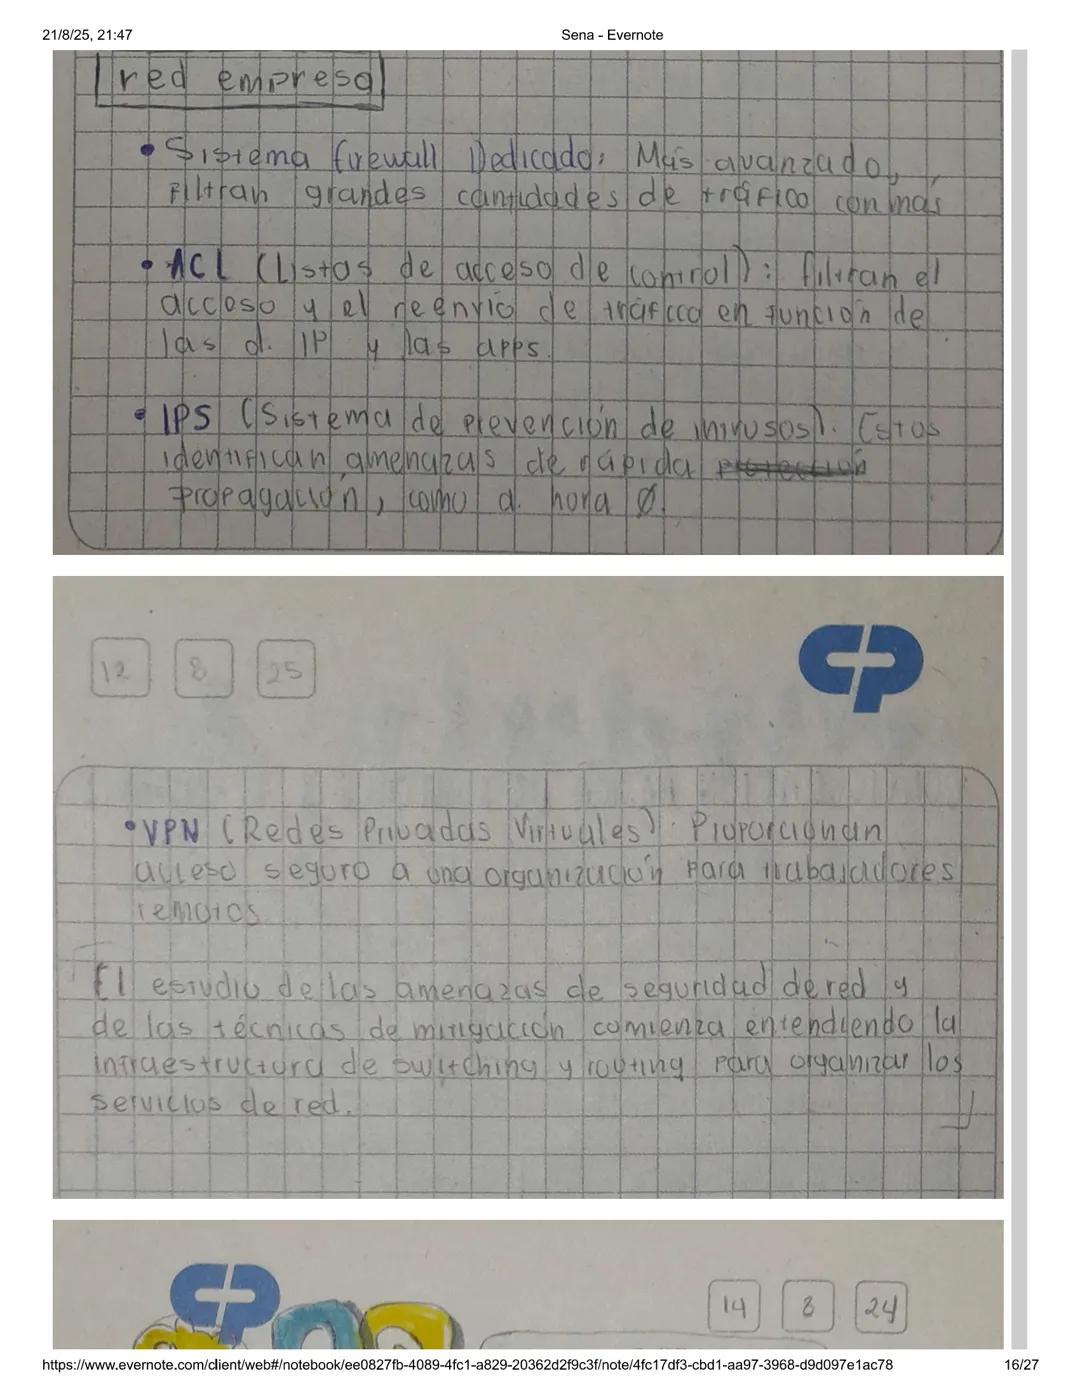 21/8/25, 21:47
Sena - Evernote
red empresa
• Sistema firewall Dedicado: Más avanzado,
Filtran grandes cantidades de tráfico con más
• ACL (Listas de acceso de control): filtran el
acceso y el reenvío de tráfico en función de
las d. IP y las apps.
• IPS (Sistema de prevención de intrusos). Estos
identifican amenazas de rápida
propagación, como a. hora Ø.
12 8 25
CP
• VPN (Redes Privadas Virtuales). Proporcionan
acceso seguro a una organización para trabajadores
remotos
El estudio de las amenazas de seguridad de red y
de las técnicas de mitigación comienza entendiendo la
infraestructura de switching y routing para organizar los
servicios de red.
CP
14 8 24
https://www.evernote.com/client/web#/notebook/ee0827fb-4089-4fc1-a829-20362d2f9c3f/note/4fc17df3-cbd1-aa97-3968-d9d097e1ac78
16/27